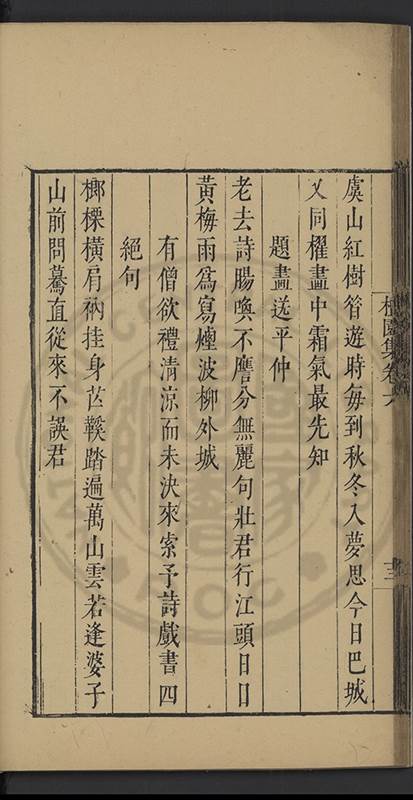 虞山紅樹管遊時每到秋冬入夢思今日巴城
又同櫂畫中霜氣最先知
題畫送平仲
老去詩腸喚不譍分無麗句壯君行江頭日日
黃梅雨爲寫煙波柳外城
有僧欲禮清涼而未決來索予詩戲書四
絕句
榔櫪橫肩衲挂身芒鞵踏遍萬山雲若逢婆子
山前問驀直從來不誤君
園集卷六
十三